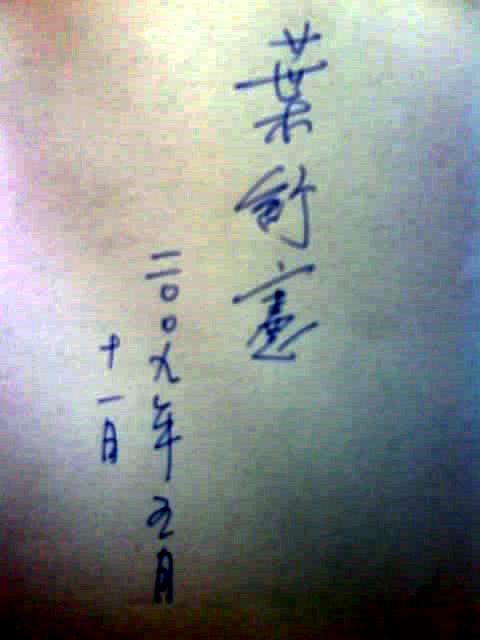 葉舒憲
二〇〇九年五月
十一日